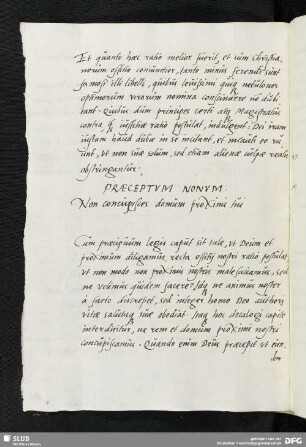 Et quanto haec ratio melior fuerit, et cum Christia-
norum officio coniunctior, tanto minus ferendi sunt
famosi illi libelli, quibus levissimi quiq nebulones
optimorum virorum nomina conscindere nō dubi
tant. Quibus dum principes certi atq Magistratus
contra q iustitiae ratio postulat, indulgent: Dei iram
iustam haud dubie in se incitant, et
unt, ut non suae solum, sed etiam alienae culpae reatu
obstringantur.
PRÆCEPTVM NONVM
Non concupisces domum proximi tui
Cum praecipuum legis caput sit tale, ut Deum et
proximum diligamus, recta officij nostri ratio postulat
ut non modo non proximis nostris male faciamus, sed
ne velimus quidem facere: Idq ne animus noster
à facto discrepet, sed integer homo Deo authori
vitae salutisq suae obediat. Itaq hoc decalogi capite
interdicitur, ne rem et domum proximi nostri
concupiscamus. Quando enim Deus praecepit ut eun
dem
SLUB
DFG